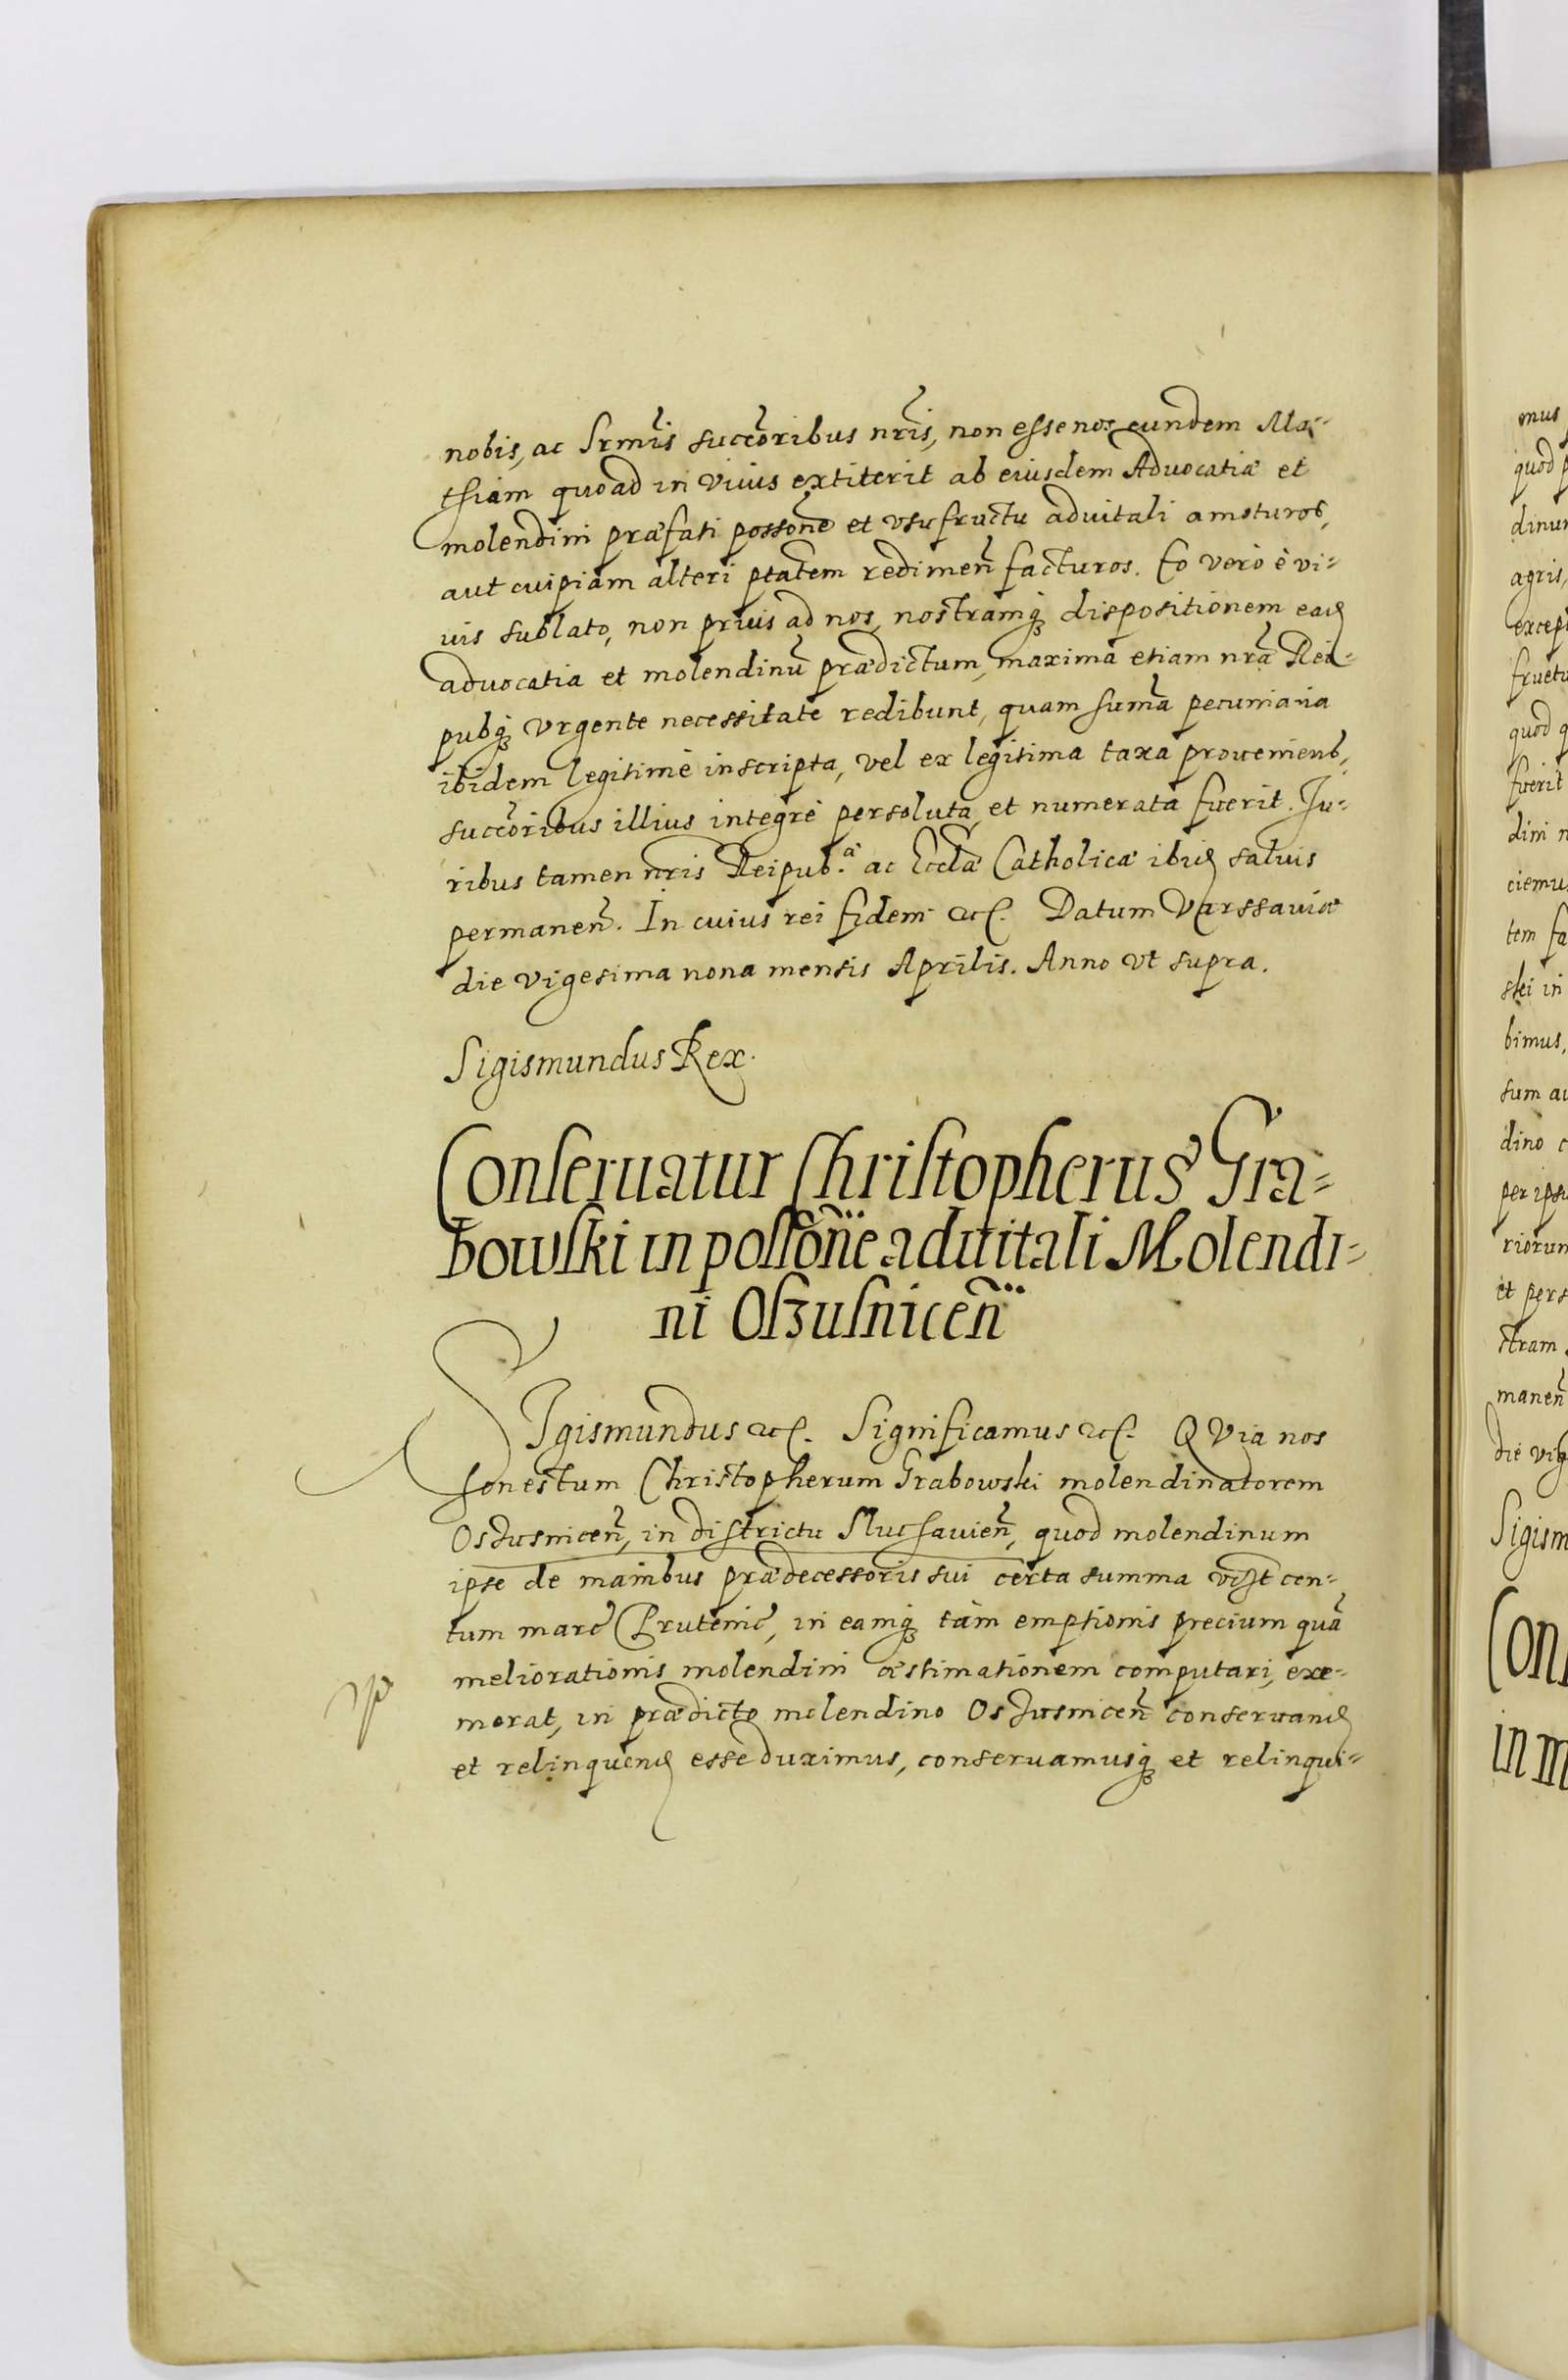 nobis, ac Srmis̃ succõribus nr̃is, non esse nos eundem Ma=
thiam quoad in viuis extiterit ab eiusdem Aduocatiæ et
molendini præfati possone̅ et vsufructu aduitali amoturos,
aut cuipiam alteri ptatem redimen̅ facturos. Eo vero è vi=
uis sublato, non prius ad nos, nostramq; dispositionem eaꝺ
aduocatia et molendinũ prædictum, maxima etiam nrã Rei=
pubq; vrgente necessitate redibunt, quam sumã pecuniaria
ibidem legitimè inscripta, vel ex legitima taxa proueniens,
succõribus illius integrè persoluta, et numerata fuerit. Ju=
ribus tamen nr̃is Reipub.ᵃ ac Eccl̃æ Catholicæ ibiꝺ saluis
permanen̅. In cuius rei fidem etc. Datum Varssauiæ
die vigesima nona mensis Aprilis. Anno vt supra.
Sigismundus Rex.
Conseruatur Christopherus Gra=
bowski in possõne aduitali Molendi=
ni Oszusnicen̅
SIgismundus etc. Significamus etc. QVia nos
honestum Christopherum Grabowski molendinatorem
Oszusnicen̅, in districtu Sluchauien̅, quod molendinum
ipse de manibus prædecessoris sui certa summa vist cen=
tum marc̃ Prutenic̃, in eamq; tàm emptionis precium quã
meliorationis molendini æstimationem computari, exe=
merat, in prædicto molendino Oszusnicen̅ conseruanꝺ
et relinquenꝺ esse duximus, conseruamusq; et relinqui=